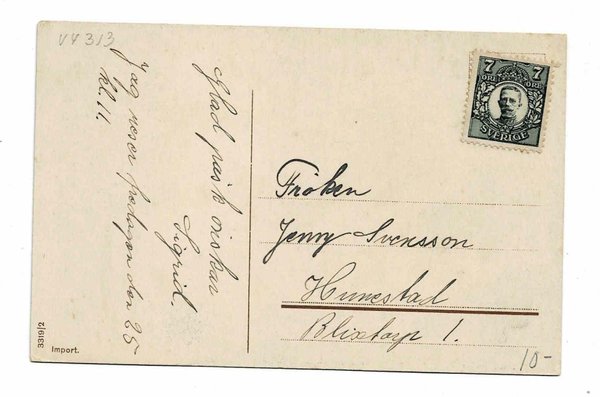 VY 313
Glad påsk önskar
Sigrid.
Jag reser fredagen den 25
kl. 11.
7 7
ÖRE ÖRE
SVERIGE
Fröken
Jenny Svensson
Hunestad
Blixtorp 1.
3319/2
Import.
10-